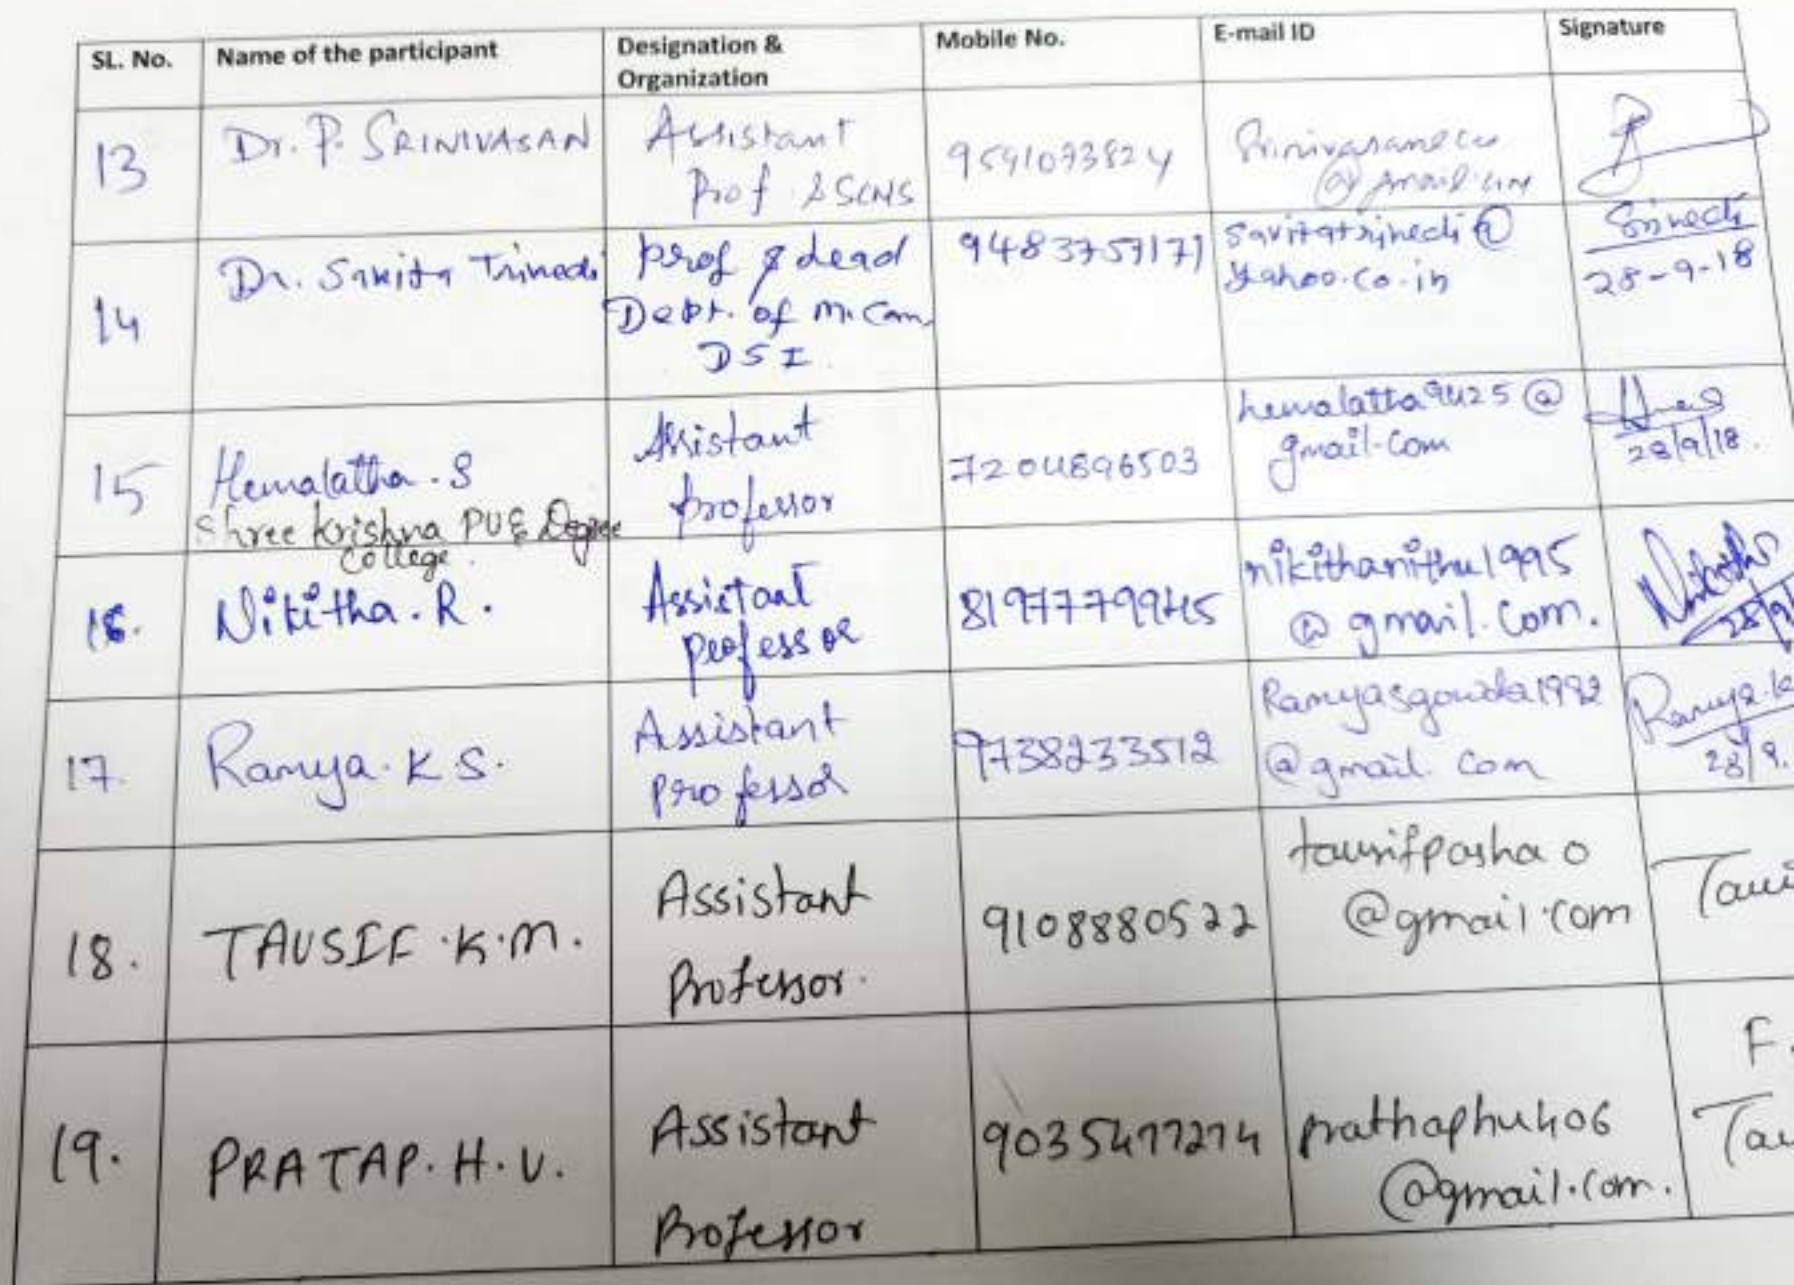 SL. No. Name of the participant Designation & Organization Mobile No. E-mail ID Signature
13 Dr. P. SRINIVASAN Assistant Prof 9591073824 @gmail.com
14 Dr. Savita Trivedi Prof & Head Dept. of M.Com DSI 9483757171 savitatrivedi@yahoo.co.in 28-9-18
15 Hemalatha.S Shree Krishna PU & Degree College. Assistant professor 7204896503 hemalatha9425@gmail.com 28/9/18.
16. Nikitha.R. Assistant professor 8197779945 nikithanithu1995@gmail.com.
17. Ramya.K.S. Assistant professor 9738233512 Ramyasgowda1992@gmail.com Ramya.K 28/9.
18. TAUSIF.K.M. Assistant Professor. 9108880522 tausifpasha0@gmail.com Taus
19. PRATAP.H.V. Assistant Professor 9035477274 prathaphv406@gmail.com. F. Tau